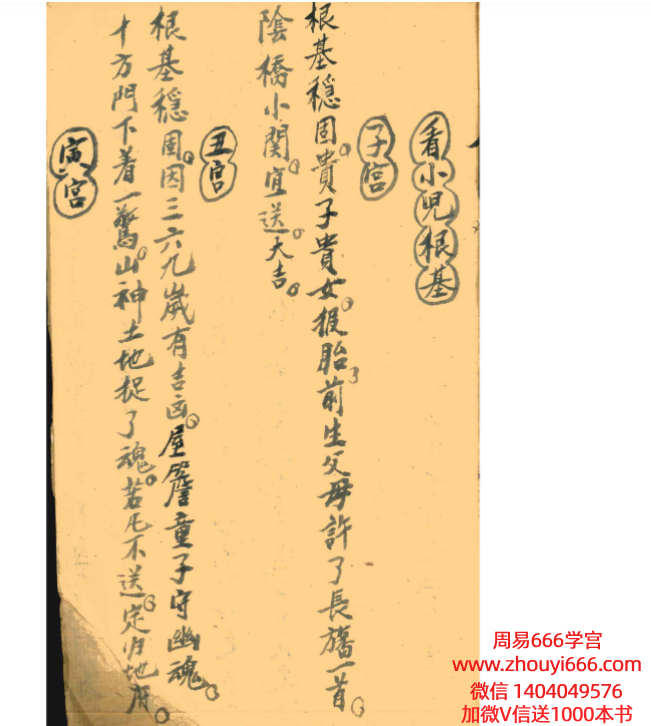 看小児根基
子宮
根基穩固。貴子貴女。投胎。前生父母許了長旛一首。
陰橋小關。宜送。大吉。
丑宮
根基穩固。因三六九歲有吉凶。屋簷童子守幽魂。
十方門下着一驚。山神土地捉了魂。若凡不送。定归地府。
寅宮
周易666学宫
www.zhouyi666.com
微信 1404049576
加微V信送1000本书